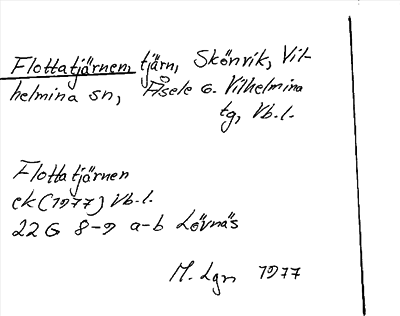 Flottatjärnen, tjärn, Skönvik, Vil-
helmina sn, Åsele o. Vilhelmina
tg, Vb.l.
Flottatjärnen
ek (1977) Vb.l.
22 G 8-9 a-b Lövnäs
M. Lgn 1977